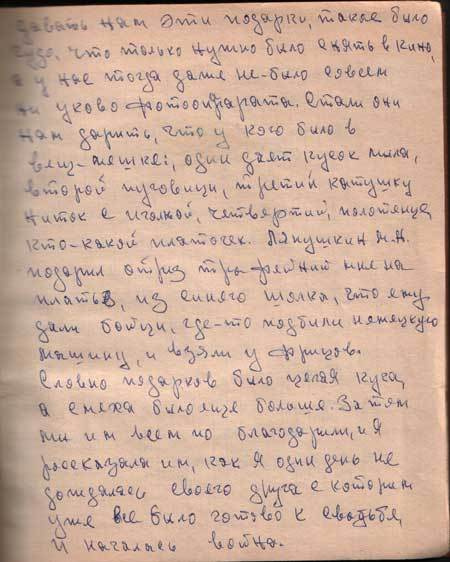 давать нам эти подарки, такое было
чудо, что только нужно было снять в кино,
а у нас тогда даже не-было совсем
ни укого фотоаппарата. Стали они
нам дарить, что у кого было в
вещ-мешке:, один дает кусок мыла,
второй пуговици, третий катушку
ниток с иголкой, четвертий, полотенце,
кто-какой платочек. Лянушкин М.Н.
подарил отриз трофейний мне на
платье, из синего шолка, что ему
дали бойци, где-то подбили немецкую
машину, и взяли у фрицов.
Словно подарков было целая куча,
а смеха было еще больше. Затем
ми им всем по благодарили, и я
рассказала им, как я один день не
дождалась своего друга с которим
уже все было готово к свадьбе,
и началась война.